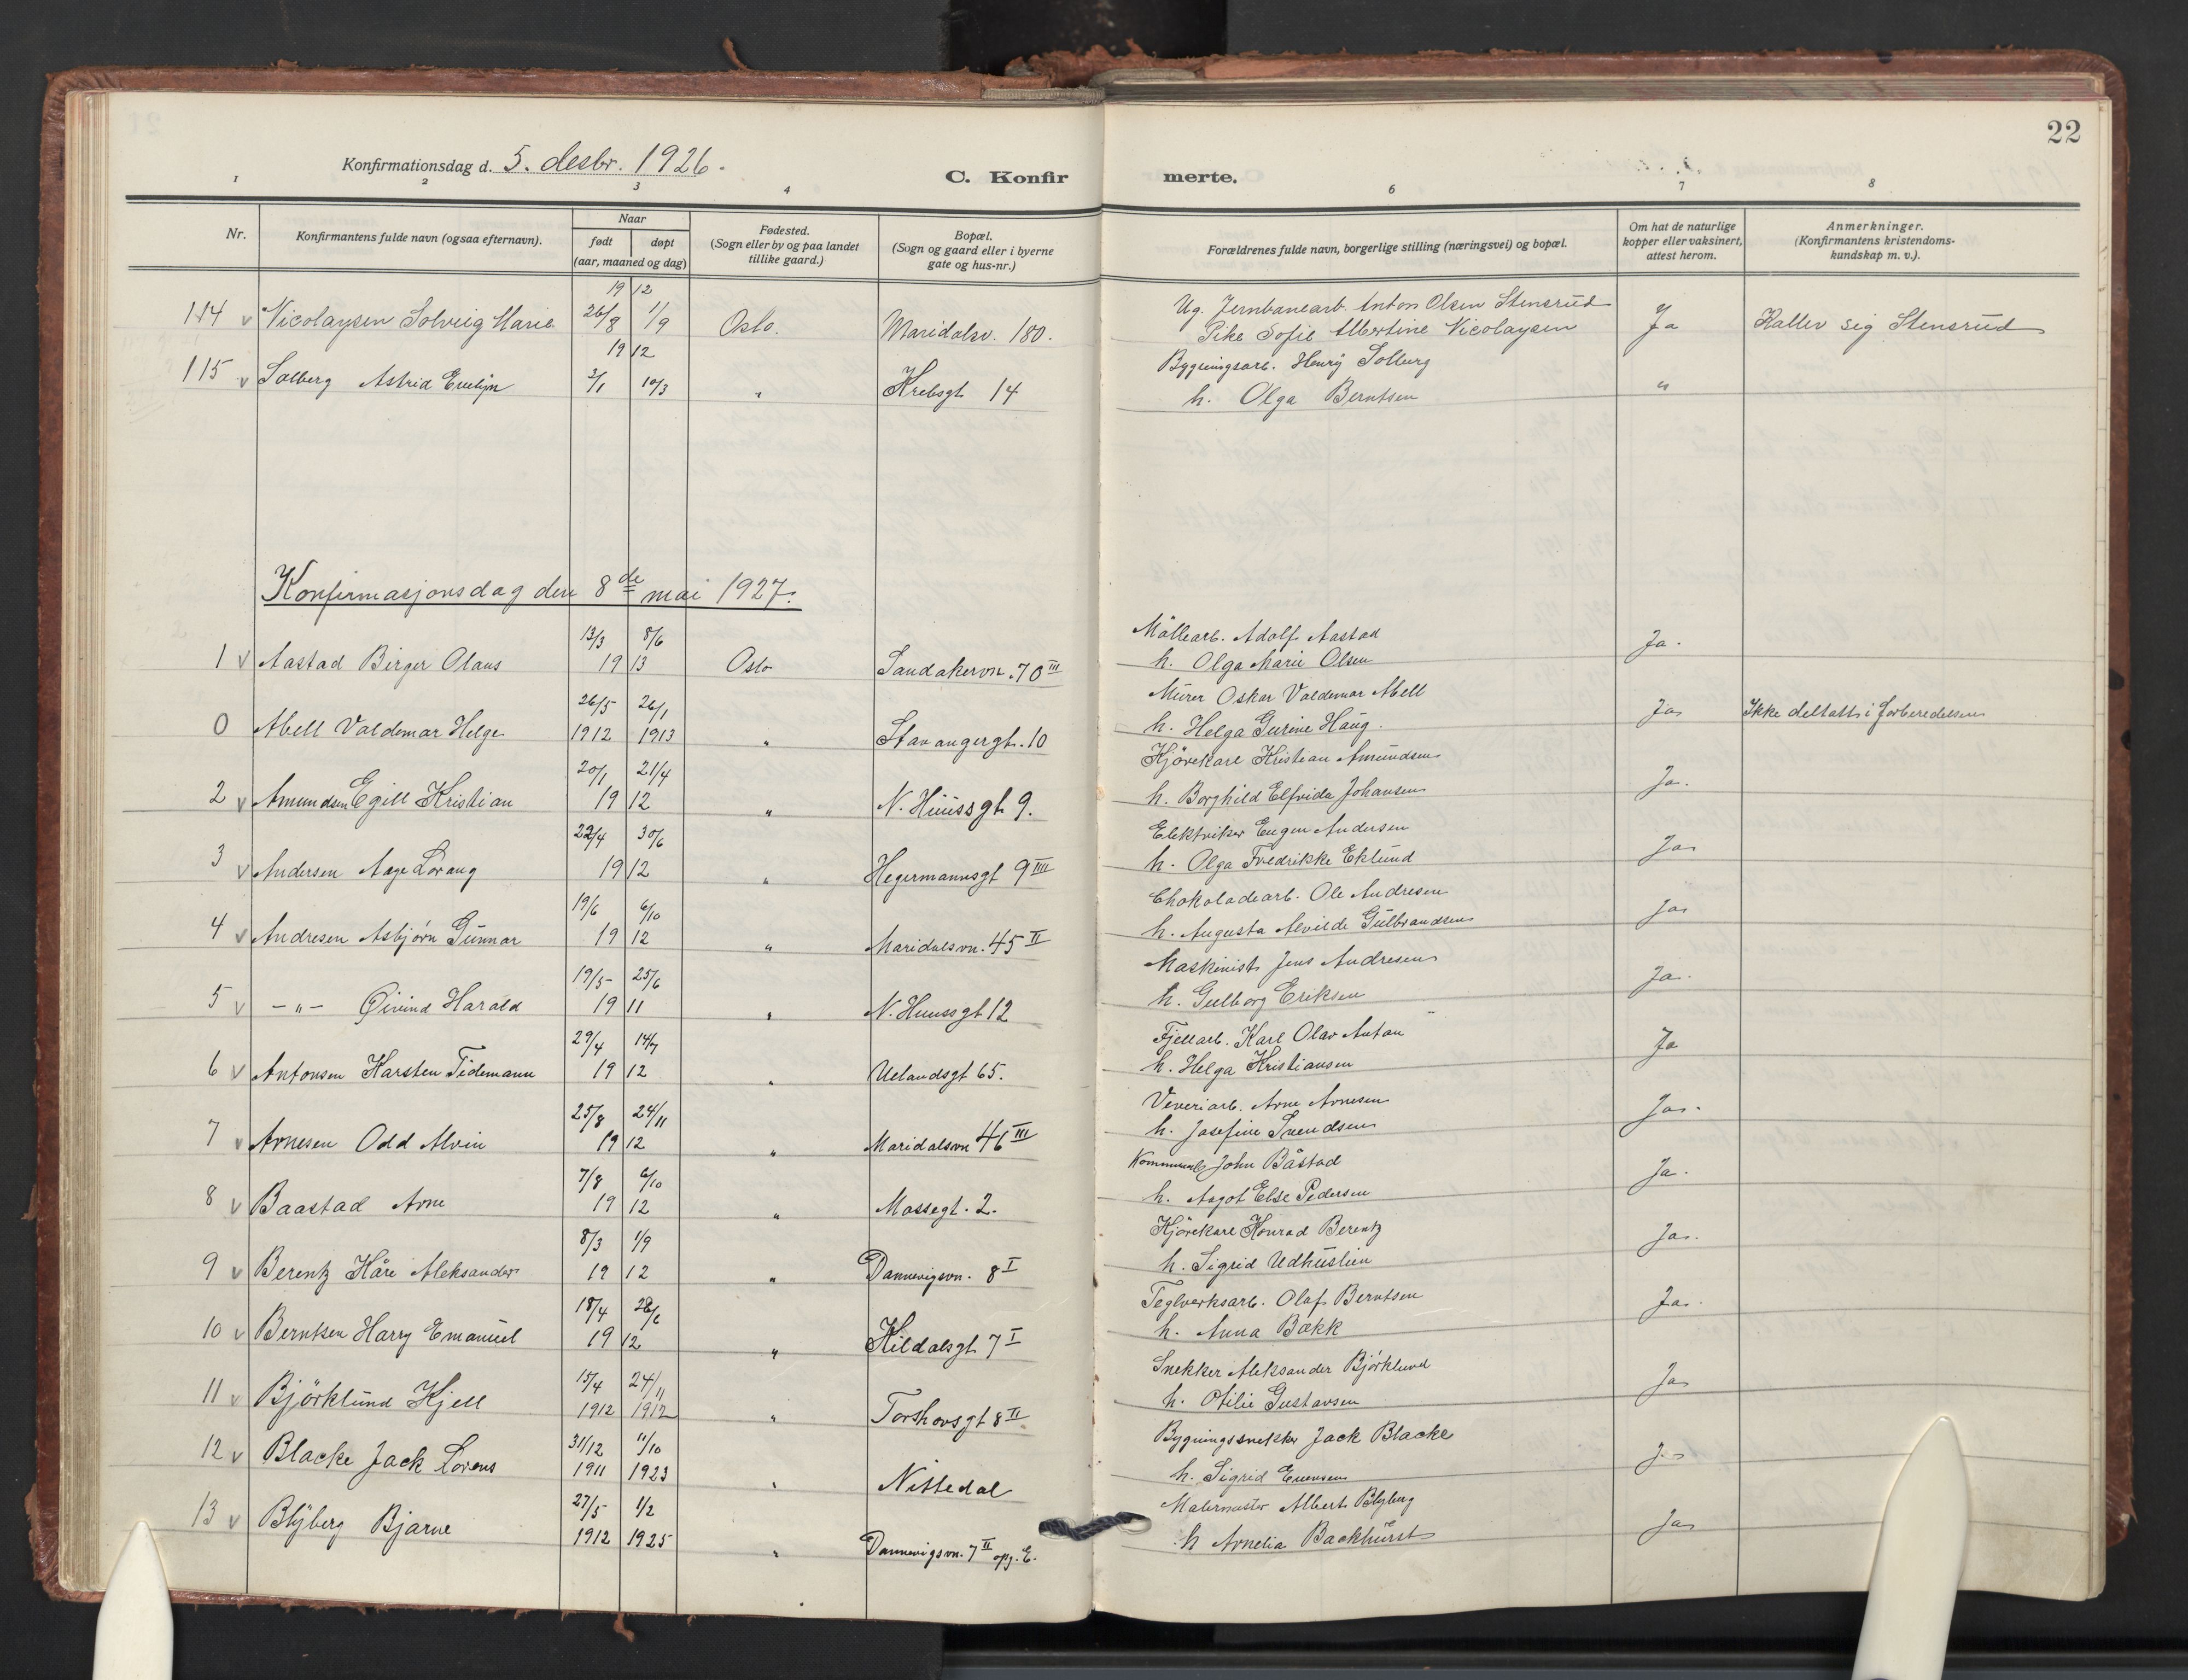 22
Konfirmationsdag d. 5. desbr. 1926.
C. Konfir
merte.
1 2 3 4 6 7 8
Nr.
Konfirmantens fulde navn (ogsaa efternavn).
Naar
født døpt
(aar, maaned og dag)
Fødested.
(Sogn eller by og paa landet
tillike gaard.)
Bopæl.
(Sogn og gaard eller i byerne
gate og hus-nr.)
Forældrenes fulde navn, borgerlige stilling (næringsvei) og bopæl.
Om hat de naturlige
kopper eller vaksinert,
attest herom.
Anmerkninger.
(Konfirmantens kristendoms-
kundskap m. v.).
19 12
114 v Nicolaysen Solveig Marie 26/8 1/9 Oslo. Maridalsv. 180.
Ug. Jernbanearb. Anton Olsen Stensrud
Pike Sofie Albertine Nicolaysen Ja Kaller sig Stensrud
19 12
115 v Solberg Astrid Evelyn 3/1 10/3 " Krebsgt 14
Bygningsarb. Henry Solberg
h. Olga Berntsen "
Konfirmasjonsdag den 8de mai 1927.
13/3 8/6
1 v Aastad Birger Olaus 19 13 Oslo Sandakervn. 70 III
Möllearb. Adolf Aastad
h. Olga Marie Olsen Ja.
26/5 26/1
0 Abell Valdemar Helge 1912 1913 " Stavangergt. 10
Murer Oskar Valdemar Abell
h. Helga Gurine Haug. Ja Ikke deltatt i forberedelsen
20/1 21/4
2 v Amundsen Egill Kristian 19 12 " N. Huusgt 9.
Kjörekarl Kristian Amundsen
h. Borghild Elfrida Johansen Ja.
22/4 30/6
3 v Andersen Aage Lorang 19 12 " Hegermannsgt 9 IIII
Elektriker Eugen Andersen
h. Olga Fredrikke Eklund Ja
19/6 6/10
4 v Andresen Asbjørn Gunnar 19 12 " Maridalsvn. 45 II
Chokoladearb. Ole Andresen
h. Augusta Alvilde Gulbrandsen Ja
19/5 25/6
5 v - " - Øivind Harald 19 11 " N. Huusgt 12
Maskinist Jens Andresen
h. Gulborg Eriksen Ja.
29/4 14/7
6 v Antonsen Karsten Tidemann 19 12 " Uelandsgt 65.
Fjellarb. Karl Olav Anton
h. Helga Kristiansen Ja
25/8 24/11
7 v Arnesen Odd Alvin 19 12 " Maridalsvn 46 III
Veveriarb. Arne Arnesen
h. Josefine Svendsen Ja.
7/8 6/10
8 v Baastad Arne 19 12 " Mossegt. 2.
John Båstad
h. Aagot Else Pedersen Ja.
8/3 1/9
9 v Berentz Kåre Aleksander 19 12 " Dannevigsvn. 8 I
Kjörekarl Konrad Berentz
h. Sigrid Udhuslien Ja.
18/4 /6
10 v Berntsen Harry Emanuel 19 12 " Kildalsgt 7 I
Teglverksarb. Olaf Berntsen
h. Anna Bakk Ja.
15/4 24/11
11 v Björklund Kjell 1912 1912 " Torshovsgt 8 II
Snekker Aleksander Björklund
h. Otilie Gustavsen Ja
31/12 11/10
12 v Blacke Jack Lorens 1911 1923 " Nittedal
Bygningssnekker Jack Blacke
h. Sigrid Evensen Ja
27/5 1/2
13 v Blyberg Bjarne 1912 1925 " Dannevigsvn. 7 II opg. E.
Malermester Albert Blyberg
h Arnelia Backhurst Ja